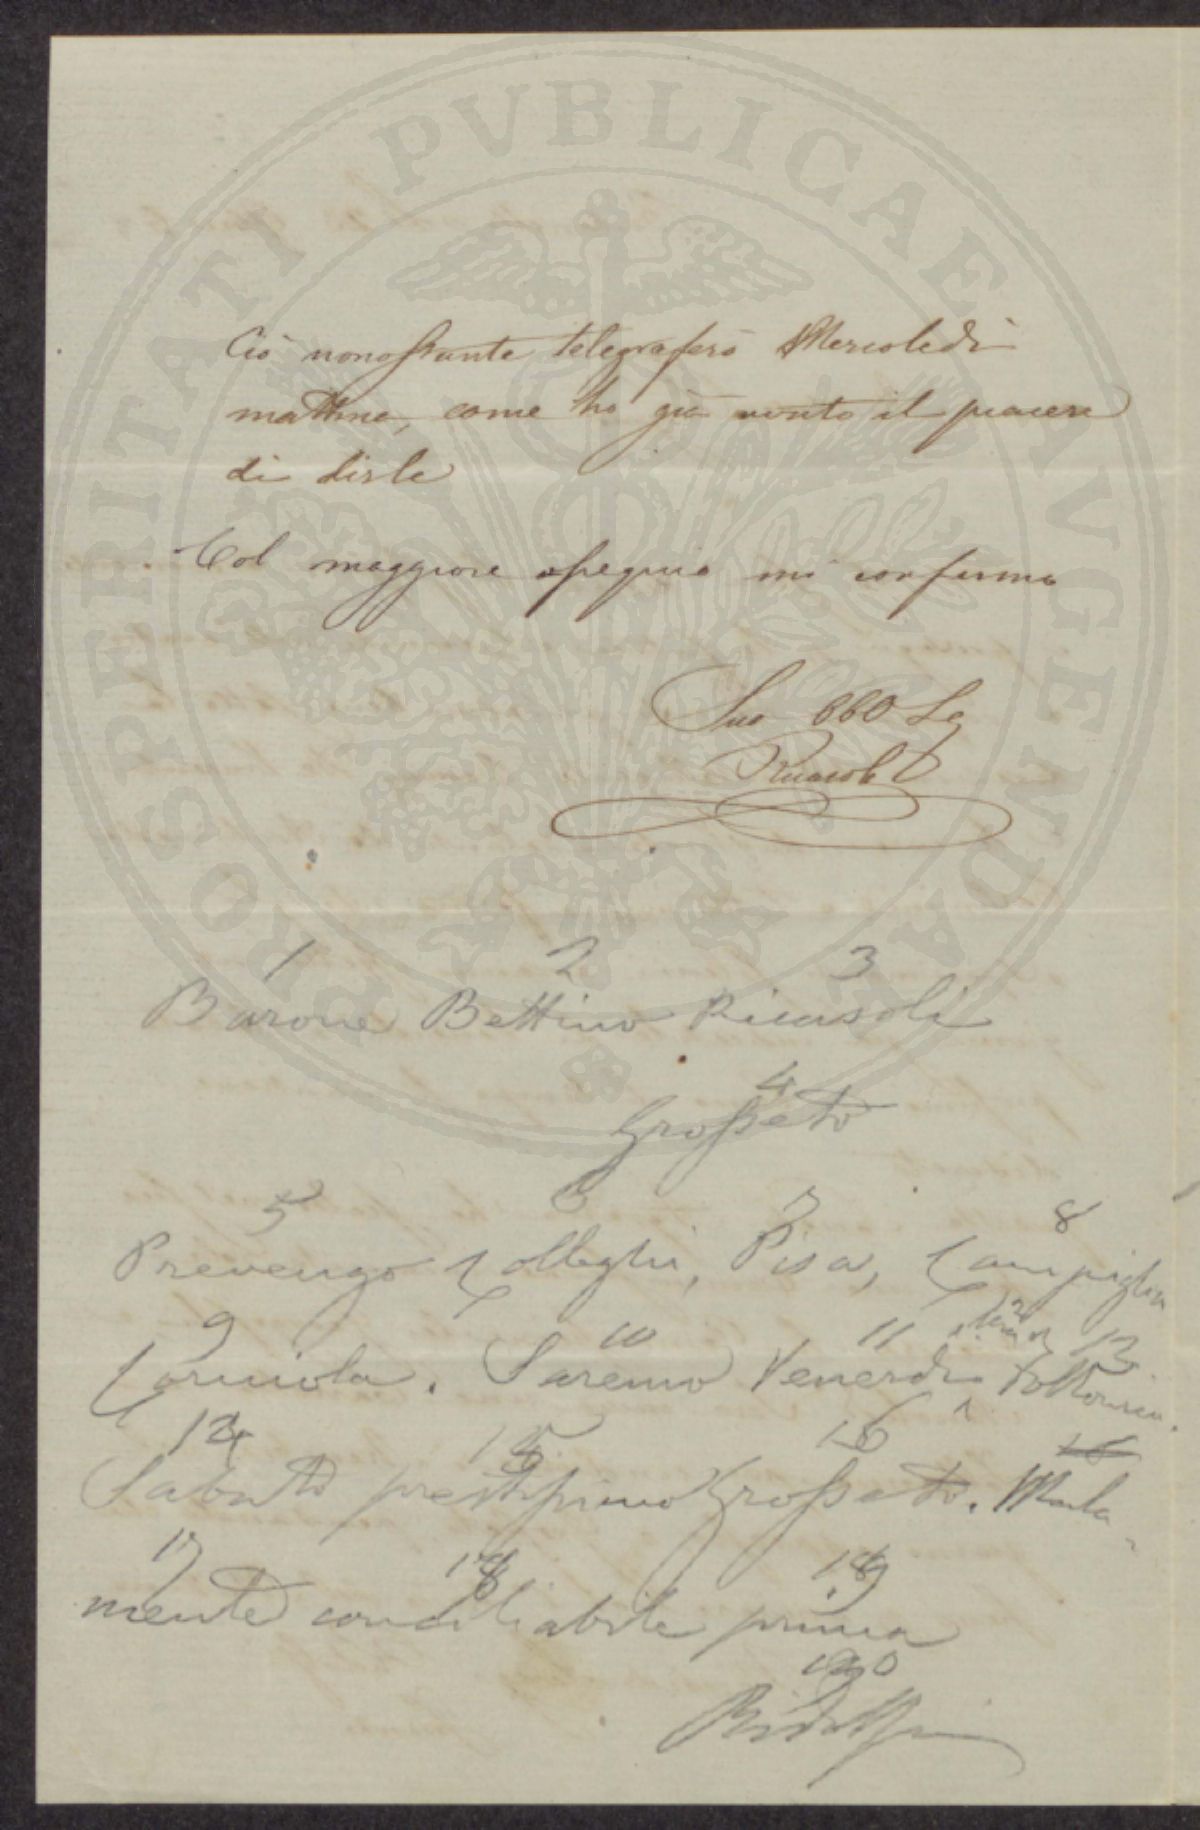 PROSPERITATI PVBLICAE AVGENDAE
Ciò nonostante telegraferò Mercoledì
mattina, come ho già avuto il piacere
di dirle
Col maggiore ossequio mi confermo
Suo
Ricasoli
1 2 3
Barone Bettino Ricasoli
4
Grosseto
5 6 7 8
Prevengo Colleghi, Pisa, Campiglia
9 10 11 12 13
Corniola. Saremo Venerdì sera Follonica.
14 15 16
Sabato prestissimo Grosseto. Mala-
17 18 19
mente conciliabile prima
20
Ridolfi